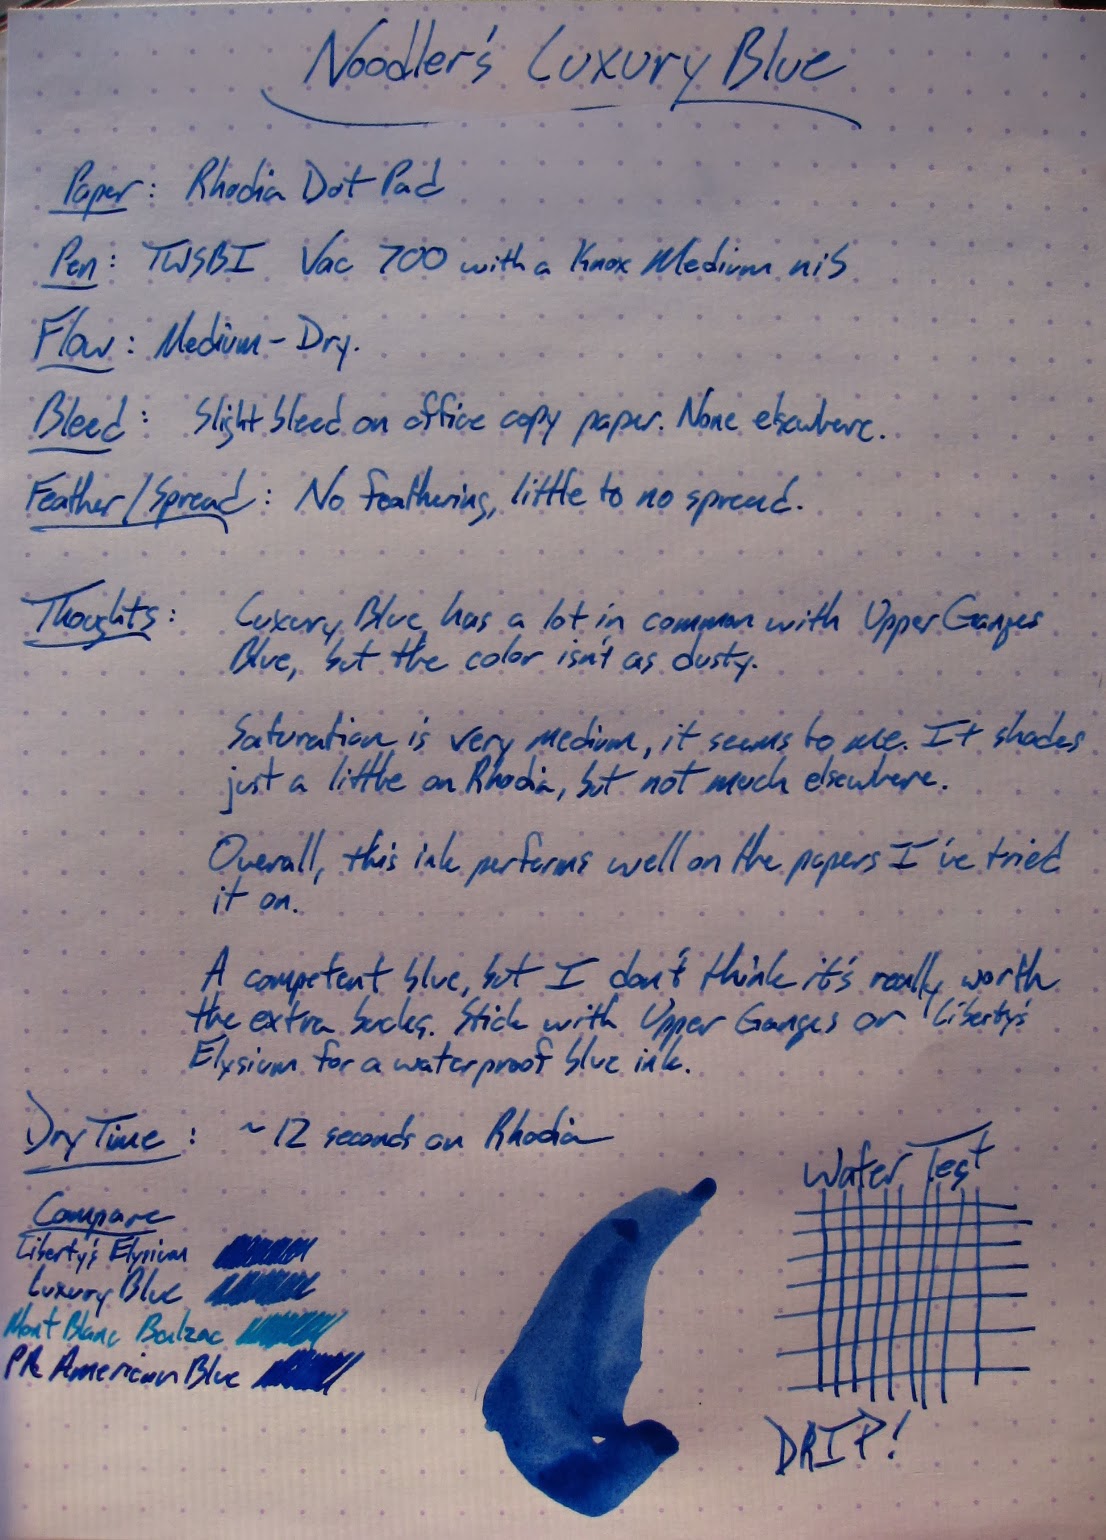 Noodler's Luxury Blue
Paper: Rhodia Dot Pad
Pen: TWSBI Vac 700 with a Knox Medium nib
Flow: Medium-Dry.
Bleed: Slight bleed on office copy paper. None elsewhere.
Feather/Spread: No feathering, little to no spread.
Thoughts: Luxury Blue has a lot in common with Upper Ganges
Blue, but the color isn't as dusty.
Saturation is very medium, it seems to me. It shades
just a little on Rhodia, but not much elsewhere.
Overall, this ink performs well on the papers I've tried
it on.
A competent blue, but I don't think it's really worth
the extra bucks. Stick with Upper Ganges or Liberty's
Elysium for a waterproof blue ink.
Dry Time: ~12 seconds on Rhodia
Water Test
Compare
Liberty's Elysium
Luxury Blue
Mont Blanc Balzac
PR American Blue
DRIP!